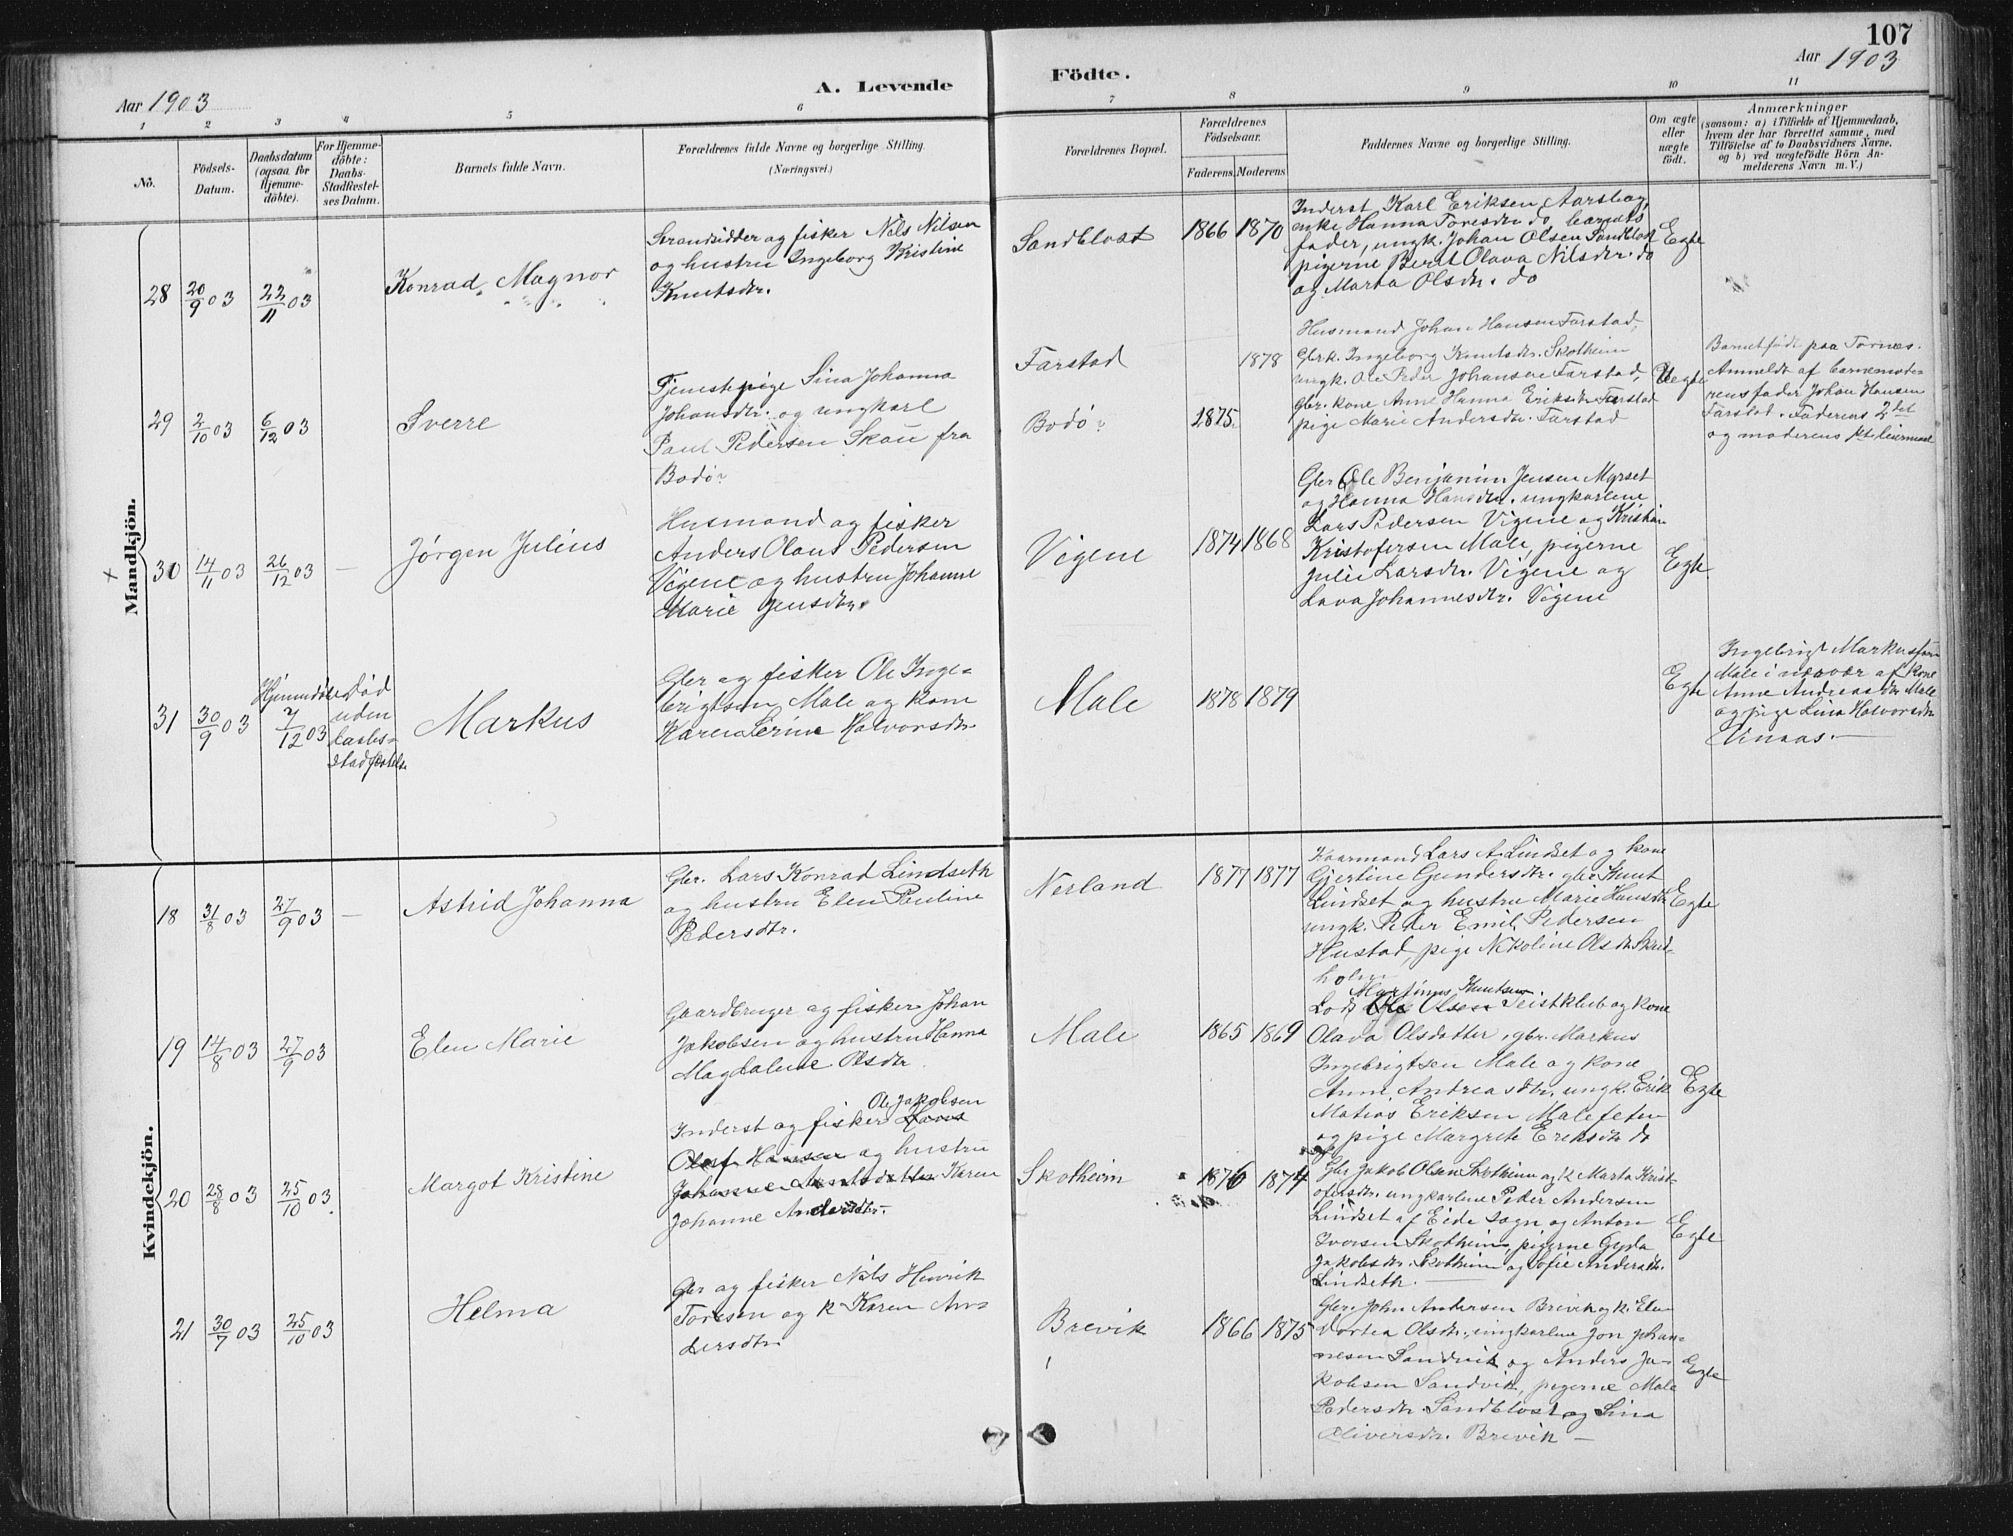 107
Aar 1903
A. Levende
Födte.
Aar 1903
1
2
3
4
5
6
7
8
9
10
11
No.
Födsels-
Datum.
Daabsdatum
(ogsaa for
Hjemme-
döbte).
For Hjemme-
döbte:
Daabs-
Stadfæstel-
ses Datum.
Barnets fulde Navn.
Forældrenes fulde Navne og borgerlige Stilling.
(Næringsvei.)
Forældrenes Bopæl.
Forældrenes
Födselsaar.
Faderens.
Moderens
Faddernes Navne og borgerlige Stilling.
Om ægte
eller
uægte
født.
Anmærkninger
(saasom: a) i Tilfælde af Hjemmedaab,
hvem der har forrettet samme, med
Tilföielse af to Daabsvidners Navne,
og b) ved uægtefödte Börn An-
melderens Navn m. V.)
Mandkjön.
28
20/9 03
22/11 03
Konrad Magnor
Strandsidder og fisker Nils Nilsen
og hustru Ingeborg Kristine
Knutsdtr.
Sandblost
1866
1870
Inderst Karl Eriksen Aarsbog,
enke Hanna Toresdtr do, barnets
fader, ungk. Johan Olsen Sandblost
pigerne Berit Olava Nilsdtr. do
og Marta Olsdtr. do
Egte
29
2/10 03
6/12 03
Sverre
Tjenestepige Sina Johanna
Johansdtr. og ungkarl
Paul Pedersen Skau fra
Bodø?
Farstad
Bodø?
1875.
1878
Husmand Johan Hansen Farstad,
Gbrk. Ingeborg Knutsdtr. Skotheim
ungk. Ole Peder Johansen Farstad,
Gbr. kone Anne Hanna Eriksdtr Farstad
pige Marie Andersdtr. Farstad
Uegte
Barnet født paa Tornes.
Anmeldt af barnemode-
rens fader Johan Hansen
Farstad. Faderens 2det
og moderens 1ste leiermaal
x
30
14/11 03
26/12 03
—
Jørgen Julius
Husmand og fisker
Anders Olaus Pedersen
Vigene og hustru Johanne
Marie Jensdtr.
Vigene
1874
1868
Gbr Ole Benjamin Jensen Myrset
og Hanna Hansdtr. ungkarlene
Lars Pedersen Vigene og Kristian
Kristofersen Male, pigerne
Julie Larsdtr. Vigene og
Lava Johannesdtr. Vigene
Egte
31
30/9 03
Hjemmedøbt
7/12 03
død
uden
daabs-
stadfæstelse
Markus
Gbr og fisker Ole Inge-
brigtsen Male og kone
Karen Serine Halvorsdtr
Male
1878
1879
Egte
Ingebrigt Markussen
Male i nærvær af kone
Anne Andreasdtr Male
og pige Lina Halvorsdtr
Vinaas. —
Kvindekjön.
18
31/8 03
27/9 03
—
Astrid Johanna
Gbr. Lars Konrad Lindseth
og hustru Elen Pauline
Pedersdtr.
Nerland
1877
1877
Kaarmand Lars A. Lindset og kone
Gjertine Gundersdtr. gbr. Knut
Lindset og hustru Marie Hansdtr
ungk. Peder Emil Pedersen
Hustad, pige Nikoline Olsdtr Skud-
holm
Egte
19
14/8 03
27/9 03
Elen Marie
Gaardbruger og fisker Johan
Jakobsen og hustru Hanna
Magdalene Olsdtr
Male
1865
1869
Martinus Knutsen
Lods Ole Olsen Teistklub og kone
Olava Olsdatter, gbr. Markus
Ingebrigtsen Male og kone
Anne Andreasdtr. ungk. Erik
Matias Eriksen Malefeten
og pige Margrete Eriksdtr do
Egte
20
28/8 03
25/10 03.
Margot Kristine
Ole Jakobsen
Inderst og fisker Hans
Olaf Hansen og hustru
Johanne Karen
Johanne Andersdtr.
Skotheim
1876
1874
Gbr Jakob Olsen Skotheim og k Marta Krist-
ofersdtr. ungkarlene Peder Andersen
Lindset af Eide sogn og Anton
Iversen Skotheim, pigerne Gyda
Jakobsdtr. Skotheim og Sofie Andersdtr.
Lindseth. —
Egte
21
30/7 03
25/10 03
Helma
Gbr og fisker Nils Henrik
Toresen og k Karen An-
dersdtr
Brevik
1866
1875
Gbr. John Andersen Brevik og k. Elen
Dortea Olsdtr. ungkarlene Jon Johan-
nesen Sandvik og Anders Ja-
kobsen Sandvik, pigerne Male
Pedersdtr. Sandblost og Sina
Oliversdtr. Brevik —
Egte